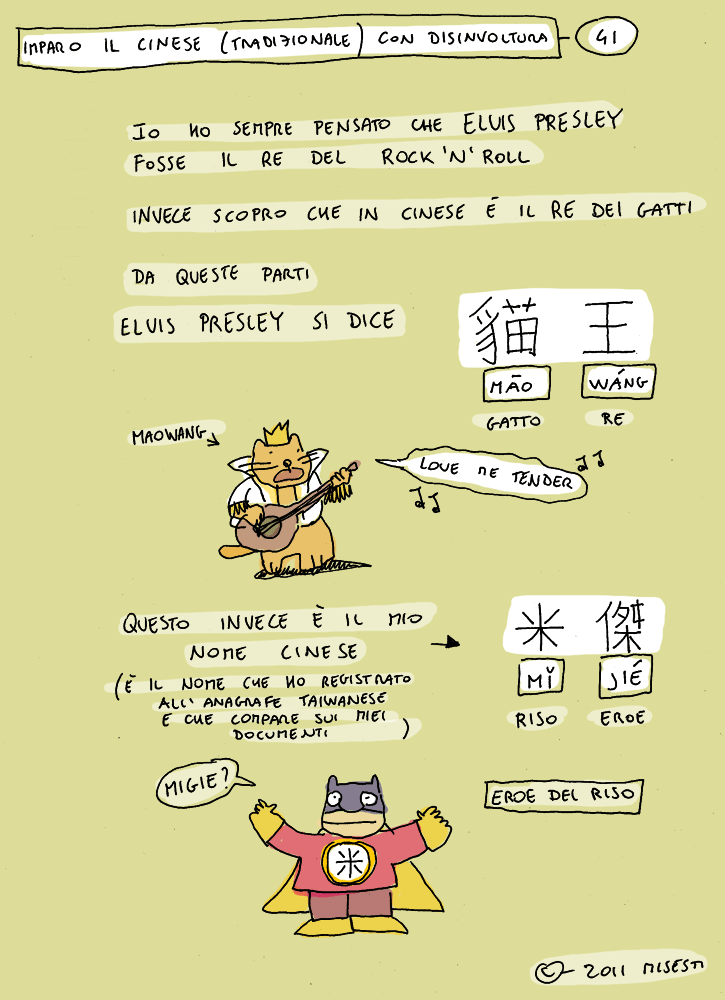 IMPARO IL CINESE (TRADIZIONALE) CON DISINVOLTURA 41
IO HO SEMPRE PENSATO CHE ELVIS PRESLEY
FOSSE IL RE DEL ROCK'N'ROLL
INVECE SCOPRO CHE IN CINESE È IL RE DEI GATTI
DA QUESTE PARTI
ELVIS PRESLEY SI DICE
貓 王
MĀO WÁNG
GATTO RE
MAOWANG
LOVE ME TENDER
QUESTO INVECE È IL MIO
NOME CINESE
(È IL NOME CHE HO REGISTRATO
ALL'ANAGRAFE TAIWANESE
E CHE COMPARE SUI MIEI
DOCUMENTI)
米 傑
MǏ JIÉ
RISO EROE
MIGIE?
EROE DEL RISO
米
© 2011 MISESTI